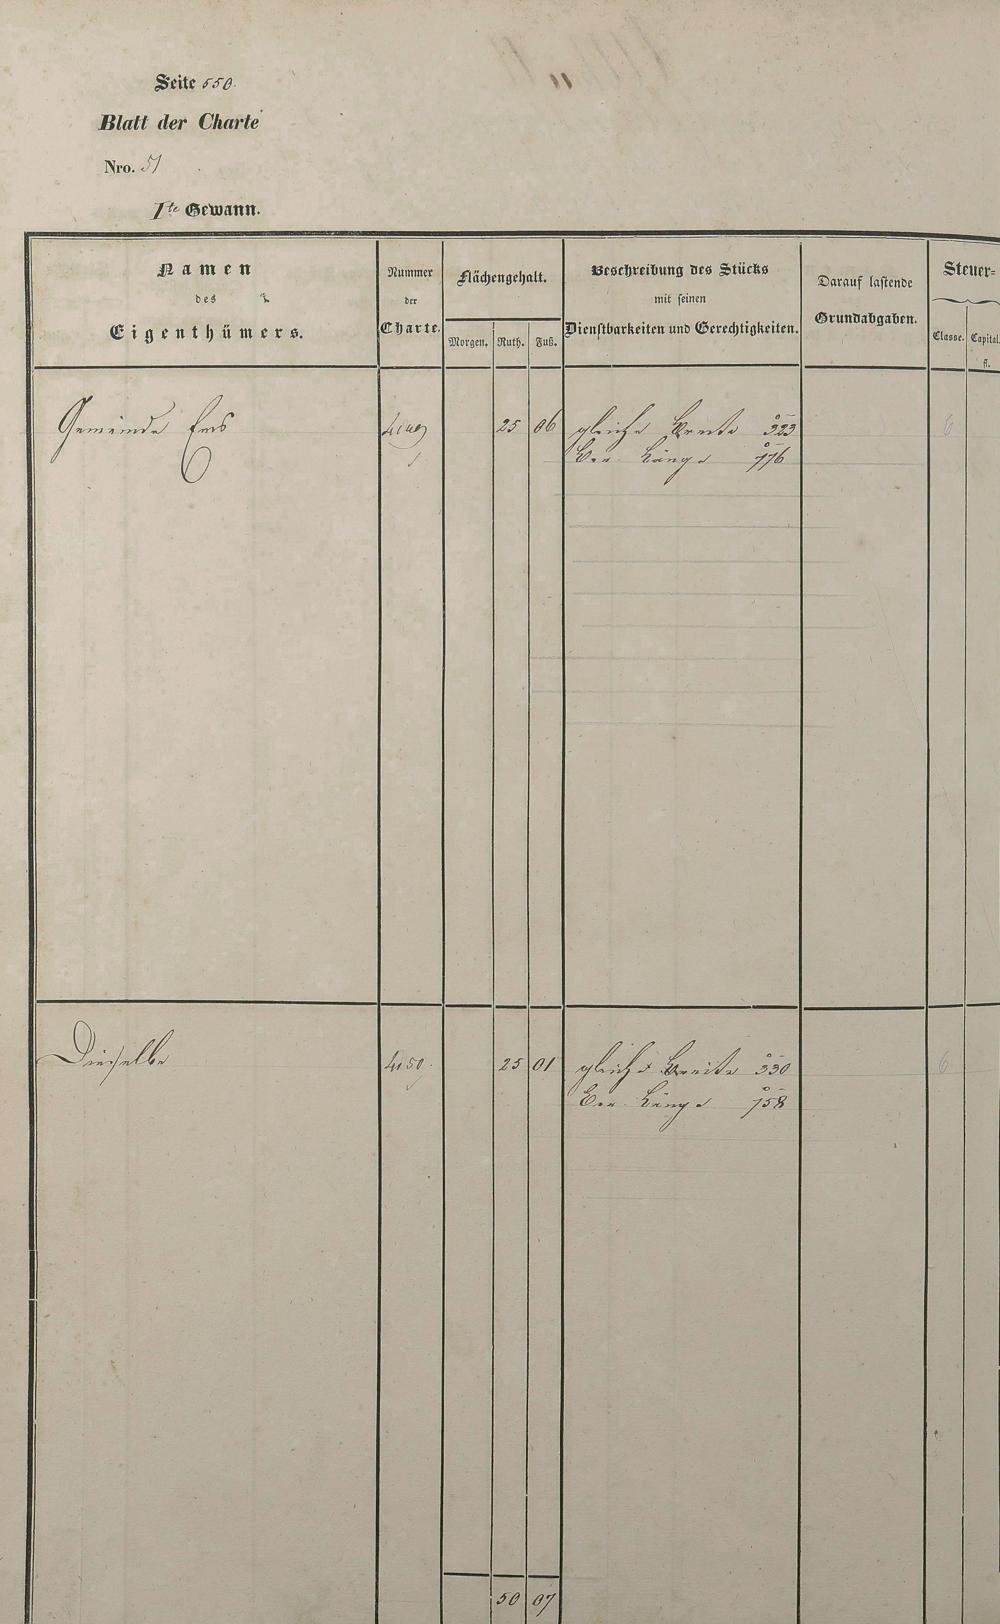 Seite 550.
Blatt der Charte
Nro. 51
1te Gewann.
Namen
des
Eigenthümers.
Nummer
der
Charte.
Flächengehalt.
Morgen. Ruth. Fuß.
Beschreibung des Stücks
mit seinen
Dienstbarkeiten und Gerechtigkeiten.
Darauf lastende
Grundabgaben.
Steuer-
Classe. Capital.
fl.
Gemeinde Ems 4149 25 06 gleiche Breite 323 6
Länge 776
Dieselbe 4150. 25 01 gleiche Breite 330 6
Länge 758
50 07